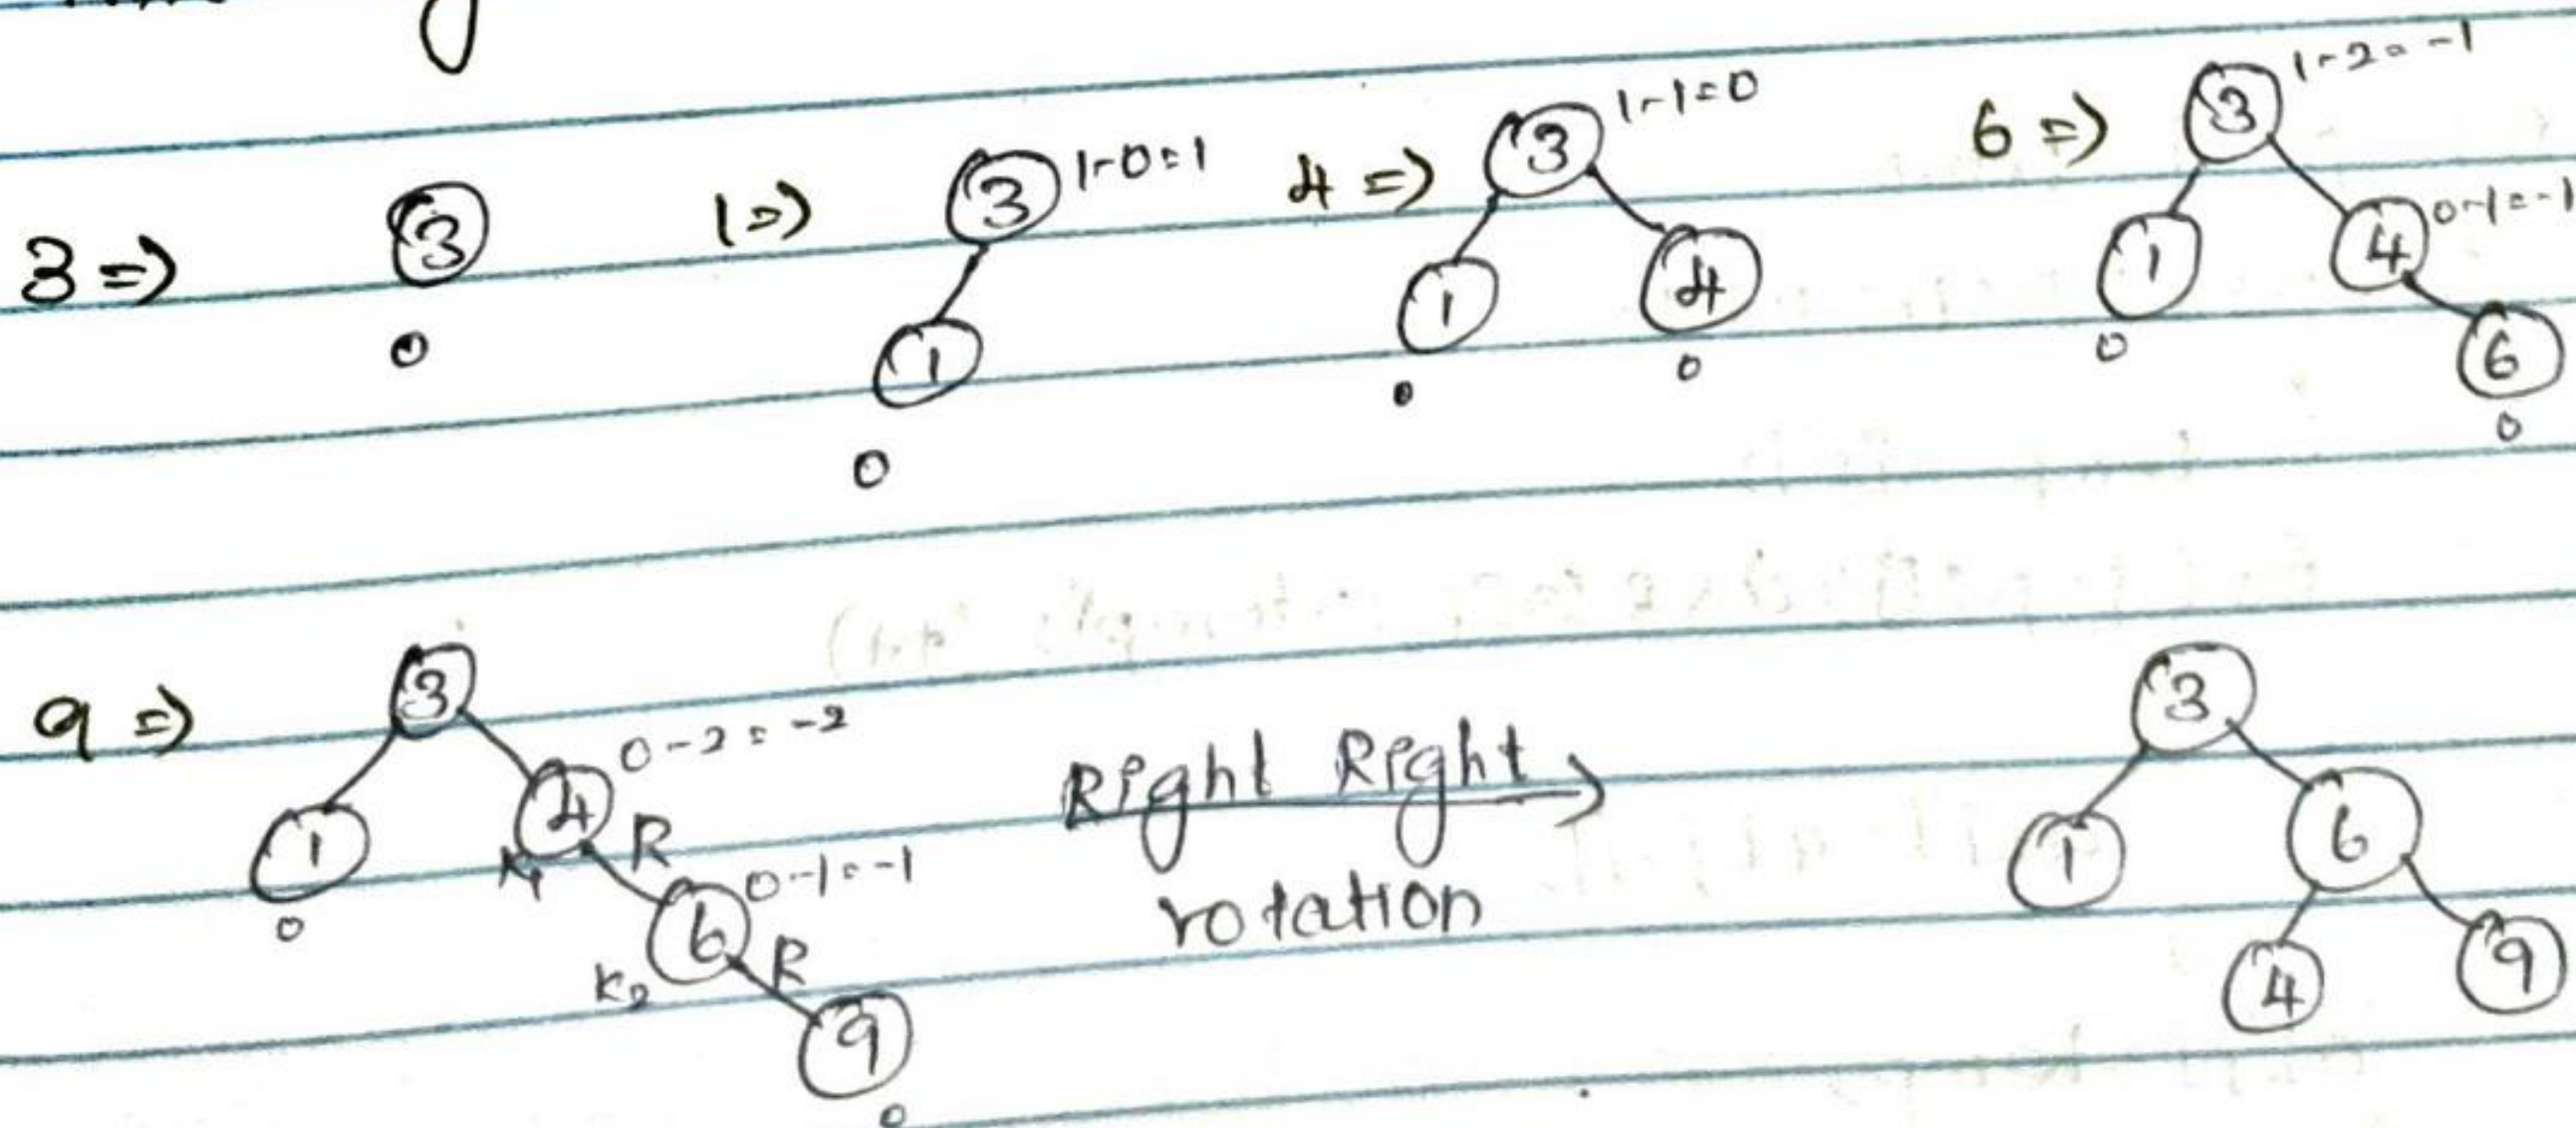 3 => 3 0
1 => 3 1-0=1 1 0
4 => 3 1-1=0 1 4 0 0
6 => 3 1-2=-1 1 4 0-1=-1 0 6 0
9 => 3 1 4 0-2=-2 0 K1 R 6 0-1=-1 K2 R 9 0
Right Right
rotation
3 1 6 4 9